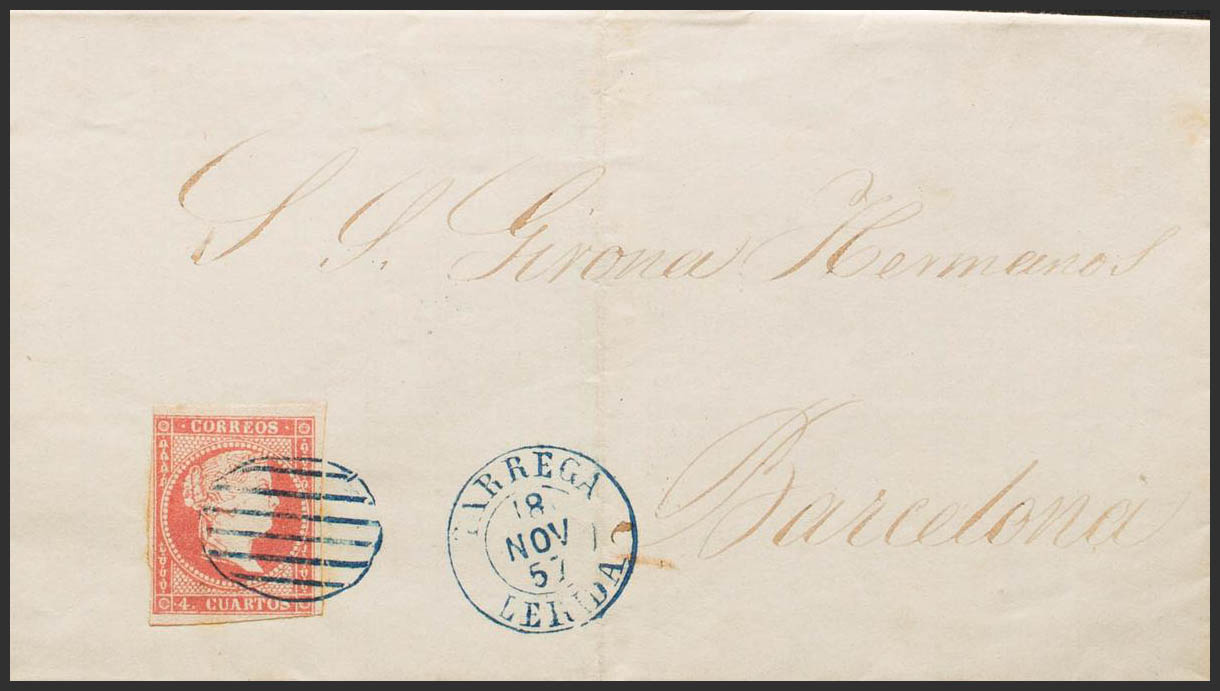 S. S. Girona Hermanos
Barcelona
CORREOS
4. CUARTOS
TARREGA
18
NOV
57
LERIDA